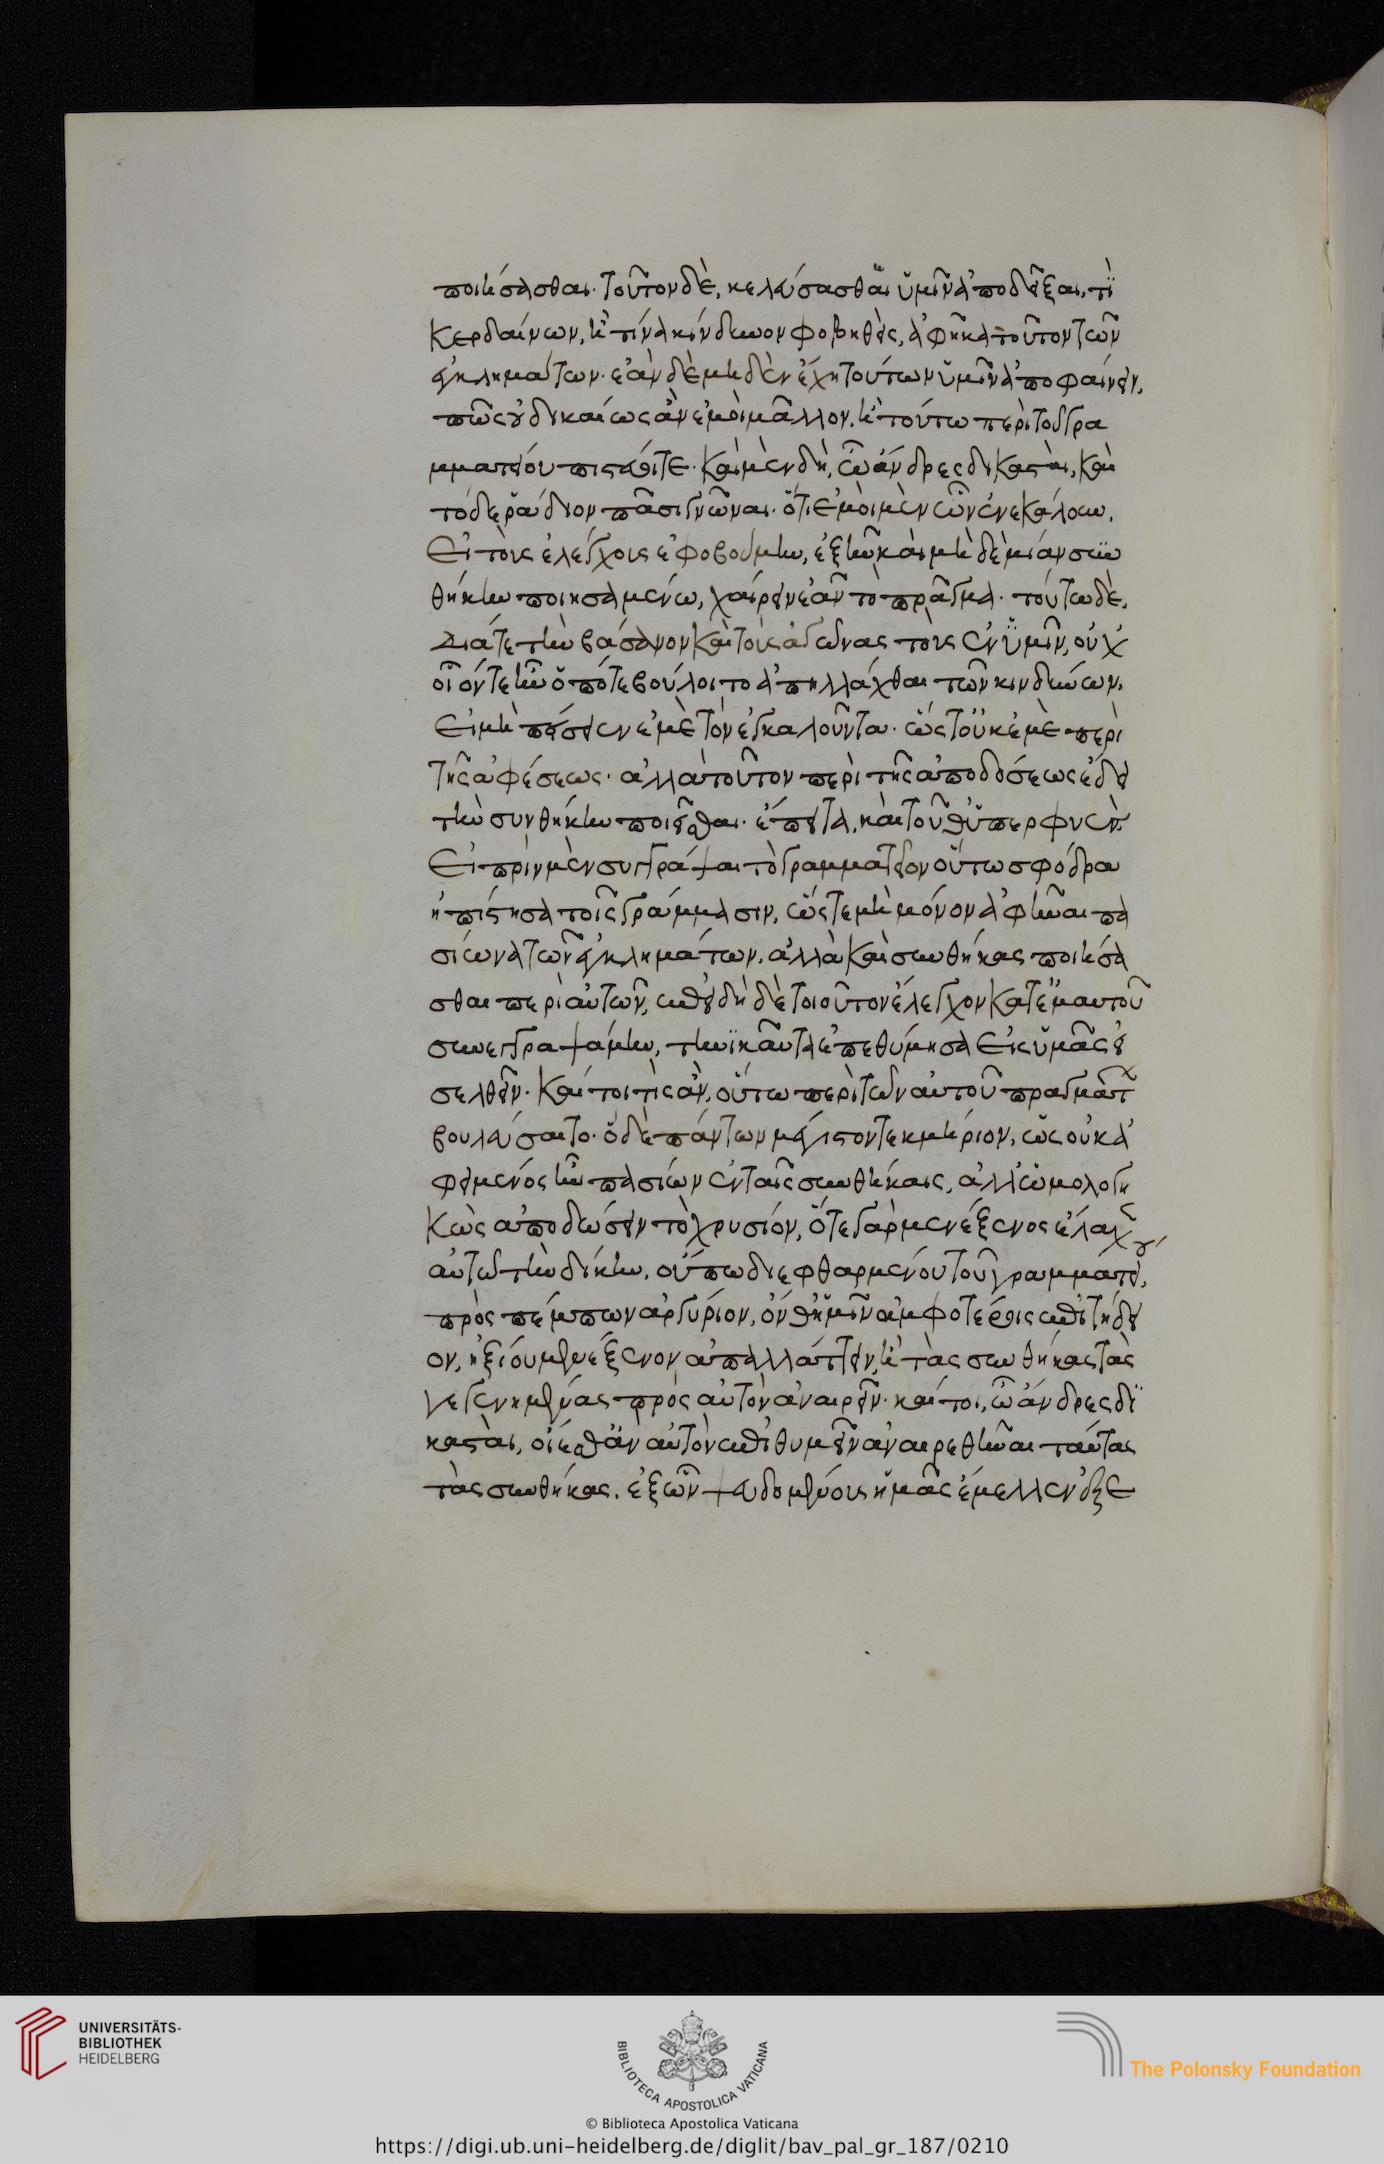 ποιήσασθαι. τοῦτον δὲ, κελεύσασθαι ὑμῖν ἀποδεῖξαι, τί
κερδαίνων, ἢ τίνα κίνδυνον φοβηθεὶς, ἀφῆκα τοῦτον τῶν
ἐγκλημάτων. ἐὰν δὲ μηδὲν ἔχη τούτων ὑμῖν ἀποφαίνειν,
πῶς οὐ δικαίως ἂν ἐμοὶ μᾶλλον, ἢ τούτω περὶ τοῦ γρα
μματείου πιστεύοιτε. καὶ μὲν δὴ, ὦ ἄνδρες δικασταὶ, καὶ
τόδε ῥάδιον πᾶσι γνῶναι. ὅτι ἐμοὶ μὲν ὧν ἐνεκάλουν,
εἰ τοὺς ἐλέγχους ἐφοβούμην, ἐξῆν καὶ μηδὲ μίαν συν
θήκην ποιησαμένω, χαίρειν ἐᾶν τὸ πρᾶγμα. τούτω δὲ,
διά τε τὴν βάσανον καὶ τοὺς ἀγῶνας τοὺς ἐν ὑμῖν, οὐχ
οἷόν τε ἦν ὁπότε βούλοιτο ἀπηλλάχθαι τῶν κινδύνων,
εἰ μὴ πείσειεν ἐμὲ τὸν ἐγκαλοῦντα. ὥστ' οὐκ ἐμὲ περὶ
τῆς ἀφέσεως. ἀλλὰ τοῦτον περὶ τῆς ἀποδόσεως ἔδει
τὴν συνθήκην ποιεῖσθαι. ἔπειτα, καὶ τοῦθ' ὑπερφυὲς.
εἰ πρὶν μὲν συγγράψαι τὸ γραμματεῖον οὕτω σφόδρα
ἠπίστησα τοῖς γράμμασιν, ὥστε μὴ μόνον ἀφῆναι πα
σίωνα τῶν ἐγκλημάτων, ἀλλὰ καὶ συνθήκας ποιήσα
σθαι περὶ αὐτῶν, ἐπειδὴ δὲ τοιοῦτον ἔλεγχον κατ' ἐμαυτοῦ
συνεγραψάμην, τηνικαῦτα ἐπεθύμησα εἰς ὑμᾶς εἰ
σελθεῖν. καί τοι τίς ἂν, οὕτω περὶ τῶν αὐτοῦ πραγμάτ
βουλεύσαιτο. ὃ δὲ πάντων μέγιστον τεκμήριον, ὡς οὐκ ἀ
φειμένος ἦν πασίων ἐν ταῖς συνθήκαις, ἀλλ' ὡμολογη
κὼς ἀποδώσειν τὸ χρυσίον, ὅτε γὰρ μενέξενος ἔλαχεν
αὐτῶ τὴν δίκην, οὔπω διεφθαρμένου τοῦ γραμματείου,
προςπέμπων ἀργύριον, ὄνθ' ἡμῖν ἀμφοτέροις ἐπιτήδει
ον, ἠξίου μενέξενον ἀπαλλάττειν, ἢ τὰς συνθήκας τὰς
γεγενημένας πρὸς αὐτὸν ἀναιρεῖν. καί τοι, ὦ ἄνδρες δι
κασταὶ, οἴεσθ' ἂν αὐτὸν ἐπιθυμεῖν ἀναιρεθῆναι ταύτας
τὰς συνθήκας, ἐξ ὧν ψευδομένους ἡμᾶς ἔμελλεν ἐξε
UNIVERSITÄTS-
BIBLIOTHEK
HEIDELBERG
BIBLIOTECA APOSTOLICA VATICANA
The Polonsky Foundation
© Biblioteca Apostolica Vaticana
https://digi.ub.uni-heidelberg.de/diglit/bav_pal_gr_187/0210